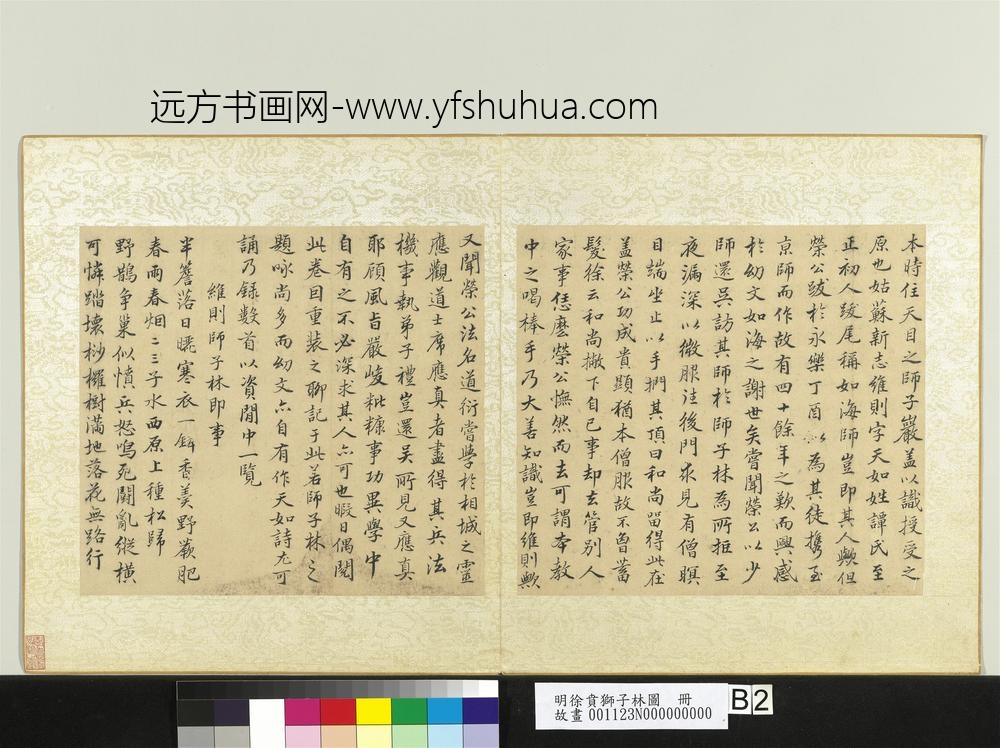 远方书画网-www.yfshuhua.com
本時住天目之師子巖盖以識授受之
原也姑蘇新志維則字天如姓譚氏至
正初人跋尾稱如海師豈即其人歟但
榮公跋於永樂丁酉以為其徒携至
京師而作故有四十餘年之歎而興感
於幼文如海之謝世矣嘗聞榮公以少
師還吳訪其師於師子林為所拒至
夜漏深以微服注後門求見有僧瞑
目端坐止以手捫其頂曰和尚留得此在
盖榮公功成貴顯猶本僧服故不曾蓄
髮徐云和尚撇下自己事却去管别人
家事恁麽榮公憮然而去可謂本教
中之喝棒手乃大善知識豈即維則歟
又聞榮公法名道衍嘗學於相城之靈
應觀道士席應真者盡得其兵法
機事執弟子禮豈還吳所見又應真
耶顧風旨嚴峻粃糠事功異學中
自有之不必深求其人亦可也暇日偶閱
此卷因重裝之聊記于此若師子林之
題咏尚多而幼文亦自有作天如詩尤可
誦乃錄數首以資閒中一覽
維則師子林即事
半簷落日曬寒衣一鉢香羹野蕨肥
春雨春烟二三子水西原上種松歸
野鵲争巢似憤兵怒鳴死鬭亂縱横
可憐踏壊桫欏樹滿地落花無路行
明徐賁獅子林圖 冊
故畫 001123N000000000
B2